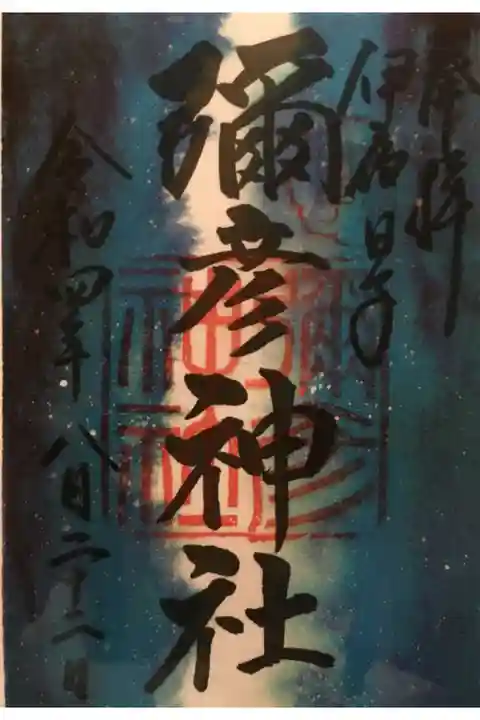 奉拝
伊夜日子
彌彦神社
令和四年八月二十八日